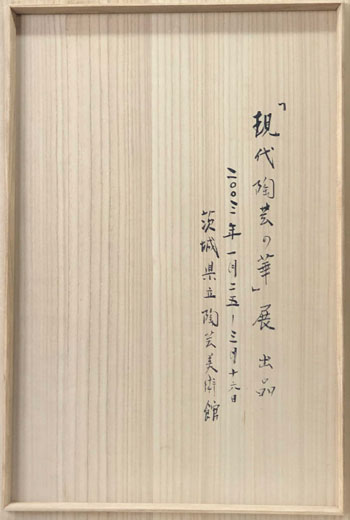 「現代陶芸の華」展 出品
二〇〇三年一月二五ー三月十六日
茨城県立陶芸美術館